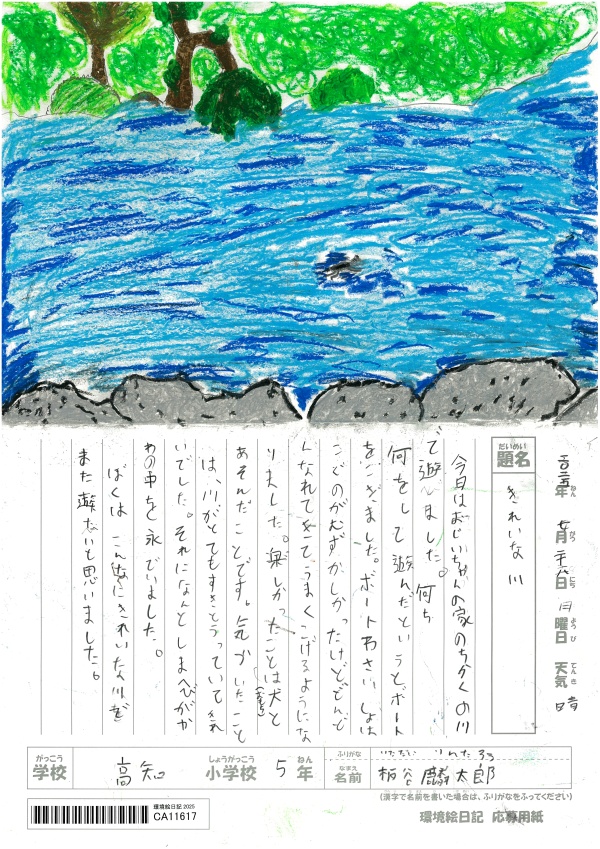 二〇二五年 七月 二十八日 月曜日 天気 晴
ねん がつ にち ようび てんき
だいめい
題名 きれいな川
今日はおじいちゃんの家のちかくの川
で遊びました。何ち
何をして遊んだというとボート
をこぎました。ボートわさいしょは
こぐのがむずかしかったけどどんど
んなれてきてうまくこげるようにな
りました。楽しかったことは犬と
あそんだことです。気がついたこと
は、川がとてもすきとうっていてきれ
いでした。それになんとしまへびがか
わの中をと永でいました。
ぼくはこんなにきれいな川を
また遊たいと思いました。
がっこう しょうがっこう ねん
学校 高知 小学校 5年
ふりがな りんたろう
なまえ
名前 板谷麟太郎
(漢字で名前を書いた場合は、ふりがなをふってください)
環境絵日記 2025
CA11617
環境絵日記 応募用紙